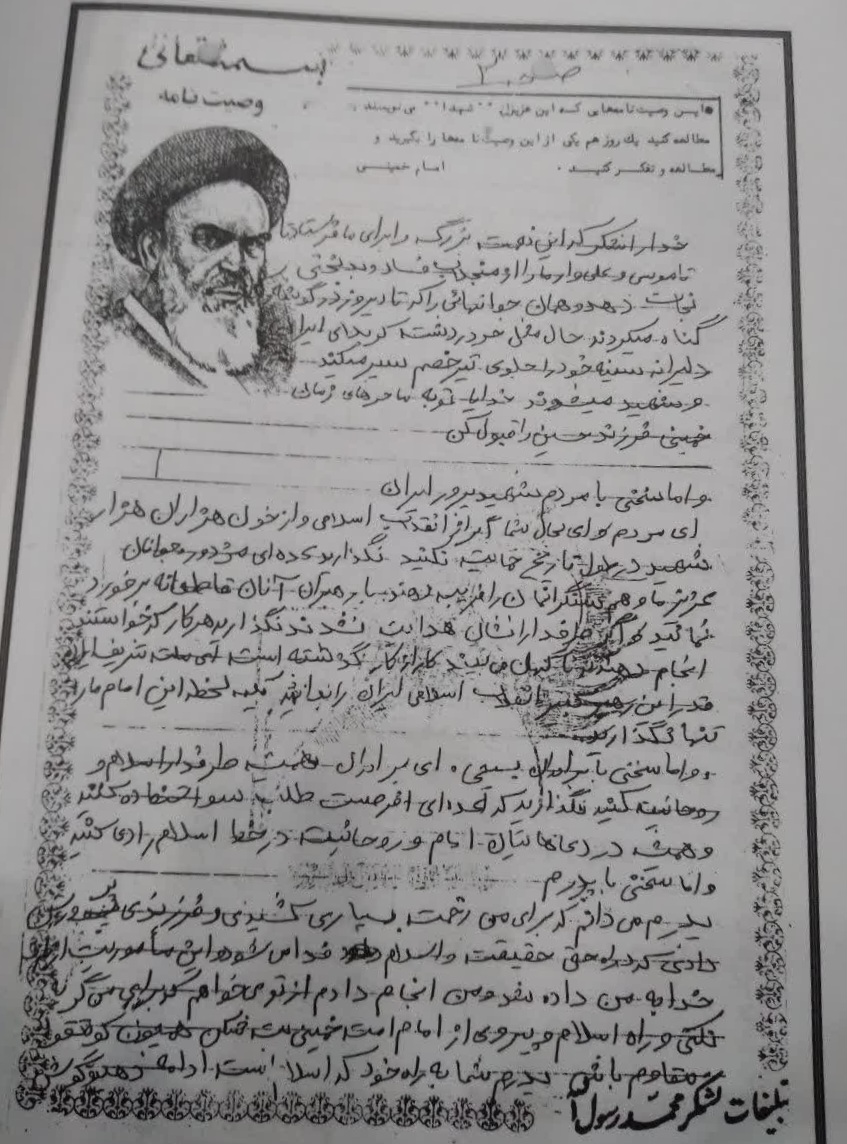 بسمه تعالی
صفحه ۲
وصیت نامه
این وصیت نامه‌هایی که این عزیزان "شهدا" می‌نویسند
مطالعه کنید یک روز هم یکی از این وصیت نامه‌ها را بگیرید و
مطالعه و تفکر کنید.
امام خمینی
خدا را شکر که این نعمت بزرگ را برای ما فرستاد تا
ناموس و علی وار ما را از منجلاب فساد و بدبختی
نجات دهد و همان جوانهائی را که تا دیروز در گوشه
گناه میکردند حال مثل خود در دشت کربلای ایران
دلیرانه سینه خود را جلوی تیر خصم سپر میکند
و شهید میشوند خدایا توبه ما حرهای زمان
خمینی فرزند حسین را قبول کن
و اما سخنی با مردم شهید پرور ایران
ای مردم وای بحال شما اگر از انقلاب اسلامی و از خون هزاران هزار
شهید در طول تاریخ حمایت نکنید نگذارید عده‌ای مزدور جوانان
عزیز ما و هم سنگرانمان را فریب دهند با رهبران آنان قاطعانه برخورد
نمائید که اگر طرفدارانشان هدایت نشدند نگذارید هر کار که خواستند
انجام دهند کار از کار گذشته است ای ملت شریف ایران
قدر این رهبر کبیر انقلاب اسلامی ایران را بدانید یک لحظه این امام ما را
تنها نگذارید
و اما سخنی با برادران بسیجی، ای برادران همیشه طرفدار اسلام و
روحانیت کنید نگذارید که عده‌ای فرصت طلب سوء استفاده کنند
و همیشه در دعاهایتان امام و روحانیت در خط اسلام را دعا کنید
و اما سخنی با پدرم
پدرم می دانم که برای من زحمت بسیاری کشیدی و فرزندی پرورش
دادی که در راه حق حقیقت و اسلام فدا می شود این مأموریت از طرف
خدا به من داده شد و من انجام دادم از تو می خواهم که برای من گریه
نکنی و راه اسلام و پیروی از امام امت خمینی بت شکن همچون کوه
مقاوم باشی پدرم شما به راه خود که اسلام است ادامه دهید و گوش
تبلیغات لشکر محمد رسول الله